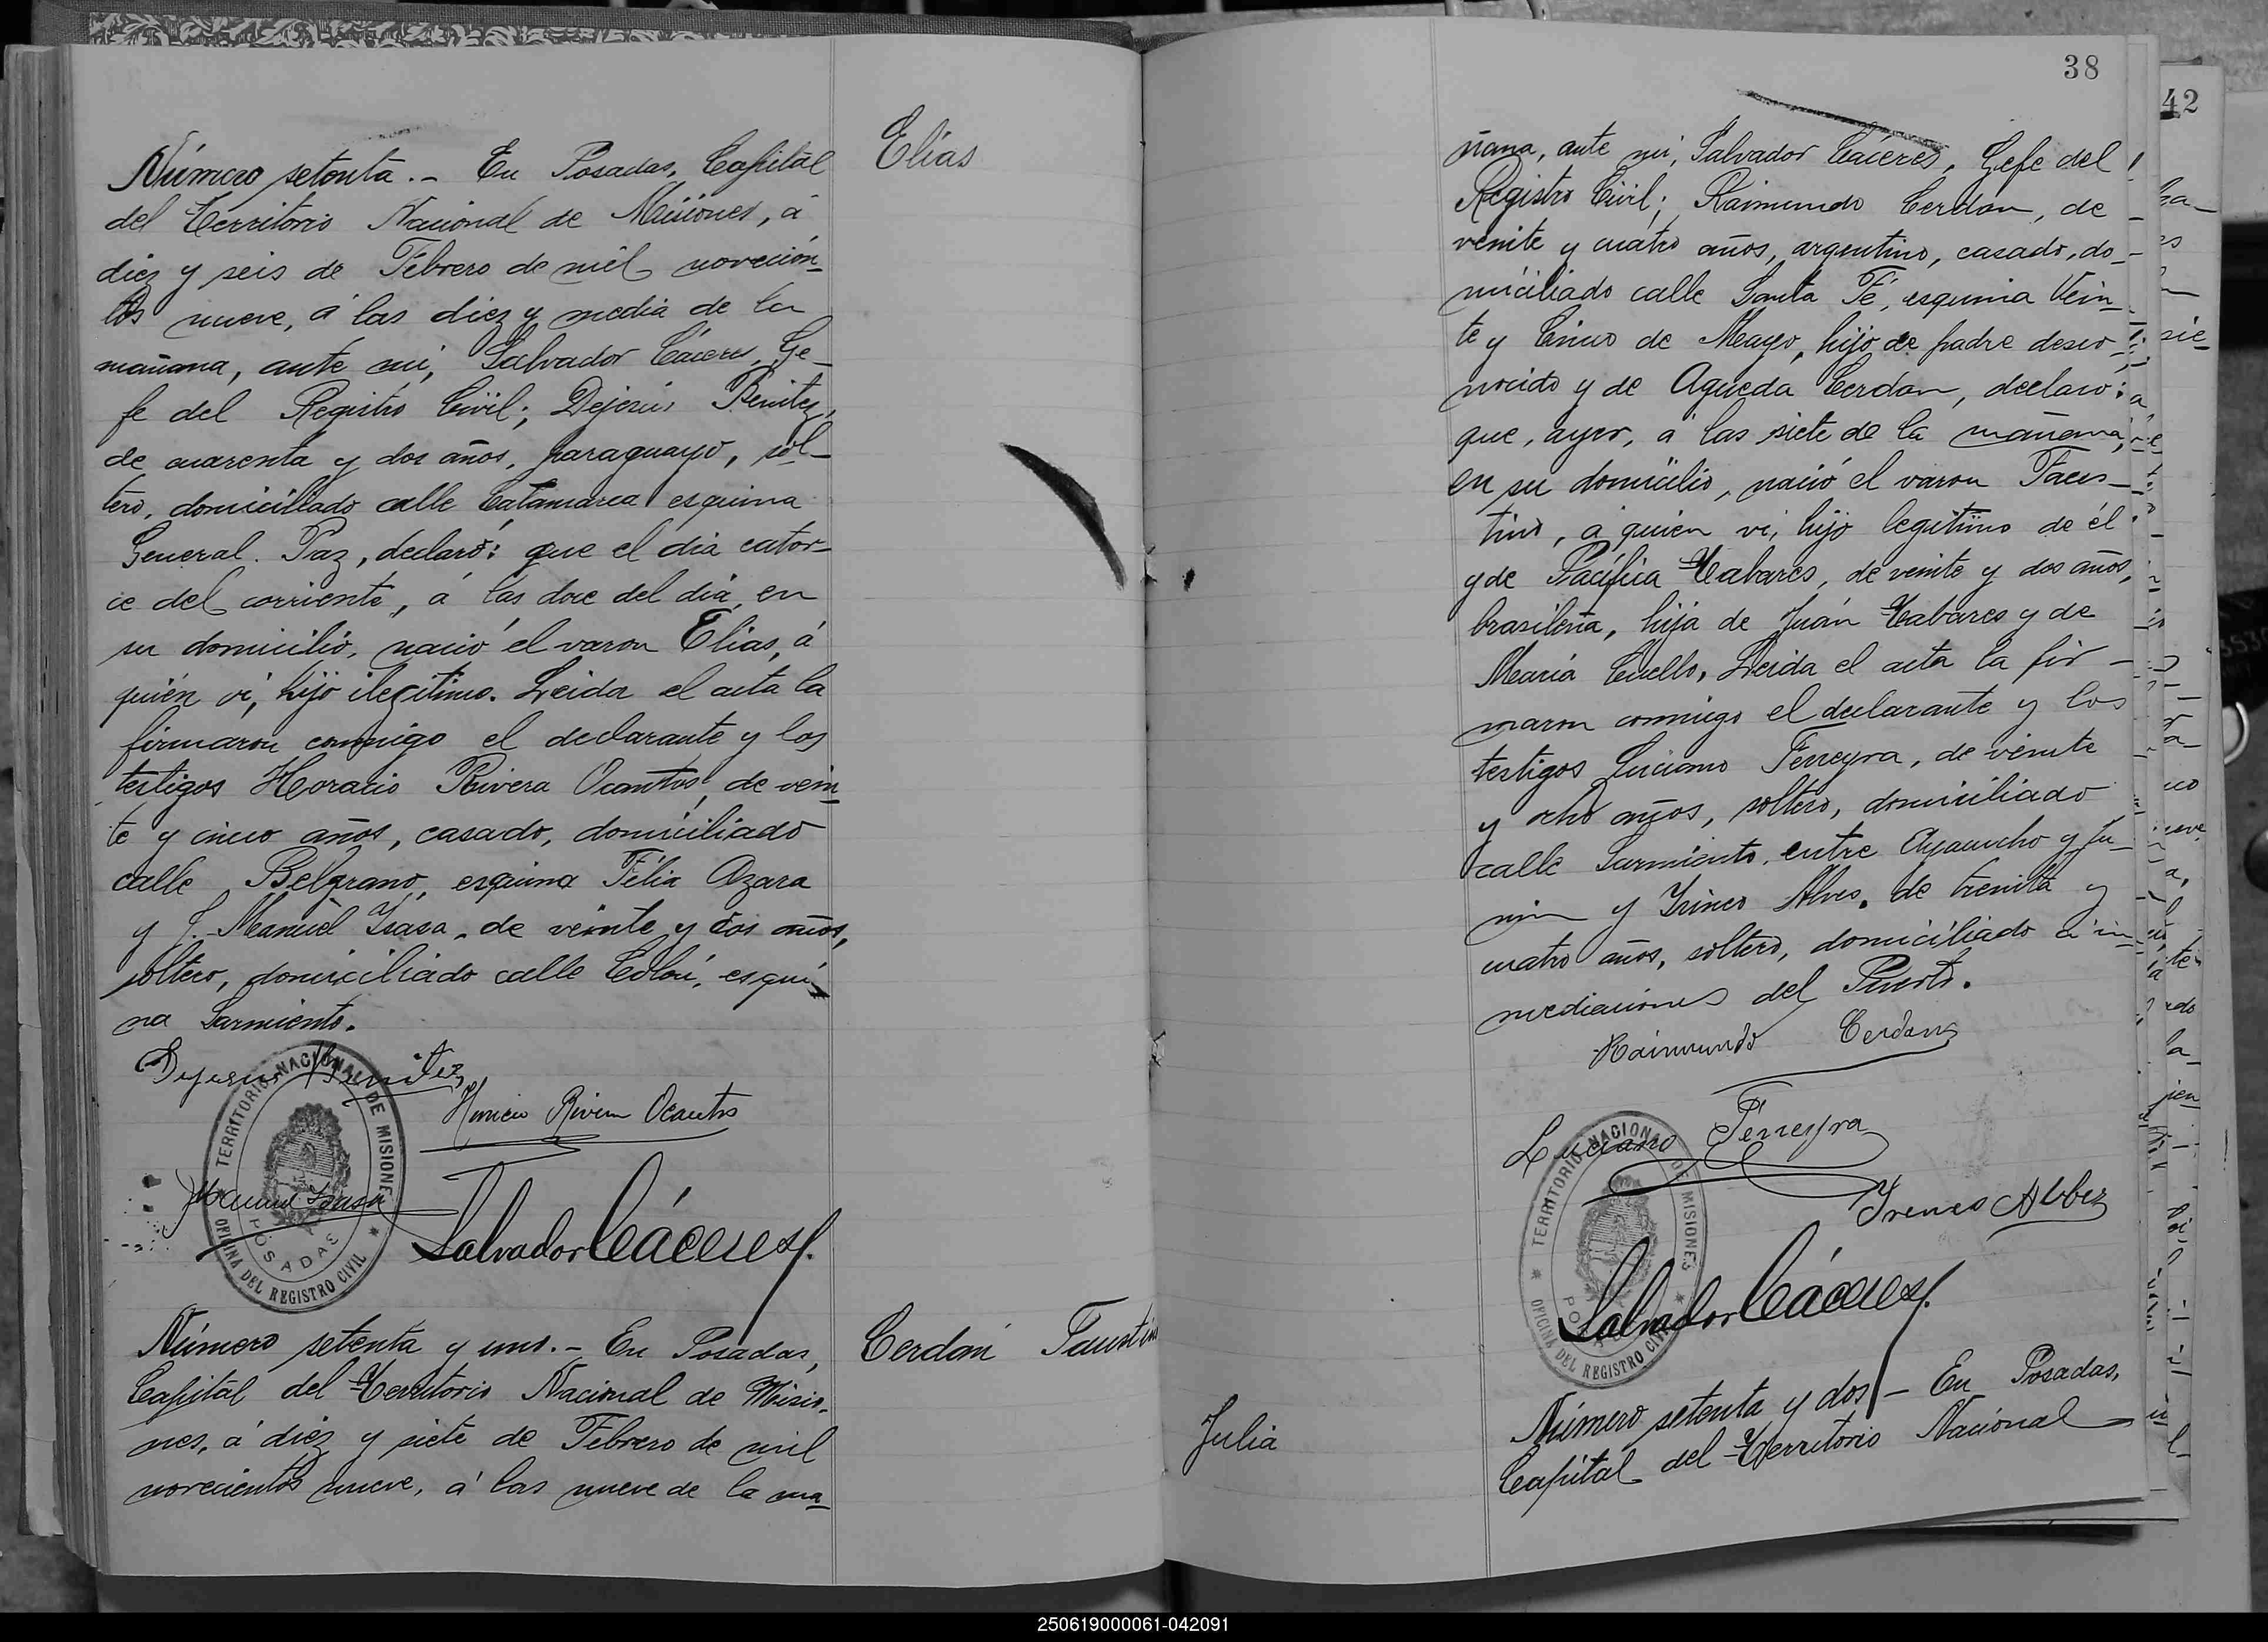 Elías
Número setenta.- En Posadas, Capital
del Territorio Nacional de Misiones, á
diez y seis de Febrero de mil novecien-
tos nueve, á las diez y media de la
mañana, ante mi, Salvador Cáceres, Ge-
fe del Registro Civil; Dejesús Benitez,
de cuarenta y dos años, paraguayo, sol-
tero, domiciliado calle Catamarca esquina
General Paz, declaró: que el dia cator-
ce del corriente, á las doce del dia, en
su domicilio, nació el varon Elias, á
quién vi, hijo ilegitimo. Leida el acta la
firmaron conmigo el declarante y los
testigos Horacio Rivera Ocantos, de vein-
te y cinco años, casado, domiciliado
calle Belgrano, esquina Félix Azara
y J. Manuel Isasa, de veinte y dos años,
soltero, domiciliado calle Colón, esqui-
na Sarmiento.
Dejesus Benitez
Horacio Rivera Ocantos
JManuel Isasa
Salvador Cáceres
TERRITORIO NACIONAL DE MISIONES
OFICINA DEL REGISTRO CIVIL
POSADAS
Cerdan Faustino
Número setenta y uno.- En Posadas,
Capital del Territorio Nacional de Misio-
nes, á diez y siete de Febrero de mil
novecientos nueve, á las nueve de la ma-
38
ñana, ante mi, Salvador Cáceres, Gefe del
Registro Civil; Raimundo Cerdan, de
veinte y cuatro años, argentino, casado, do-
miciliado calle Santa Fé, esquina Vein-
te y Cinco de Mayo, hijo de padre desco-
nocido y de Agueda Cerdan, declaró:
que, ayer, á las siete de la mañana,
en su domicilio, nació el varon Faus-
tino, á quien vi, hijo legitimo de él
y de Pacífica Tabares, de veinte y dos años,
brasileña, hija de Juán Tabares y de
María Cuello. Leida el acta la fir-
maron conmigo el declarante y los
testigos Luciano Ferreyra, de veinte
y ocho años, soltero, domiciliado
calle Sarmiento, entre Ayacucho y Ju-
nin y Irineo Alves, de treinta y
cuatro años, soltero, domiciliado á in-
mediaciones del Puerto.
Raimundo Cerdan
Luciano Ferreyra
Ireneo Albez
Salvador Cáceres
TERRITORIO NACIONAL DE MISIONES
OFICINA DEL REGISTRO CIVIL
Julia
Número setenta y dos.- En Posadas,
Capital del Territorio Nacional
42
250619000061-042091